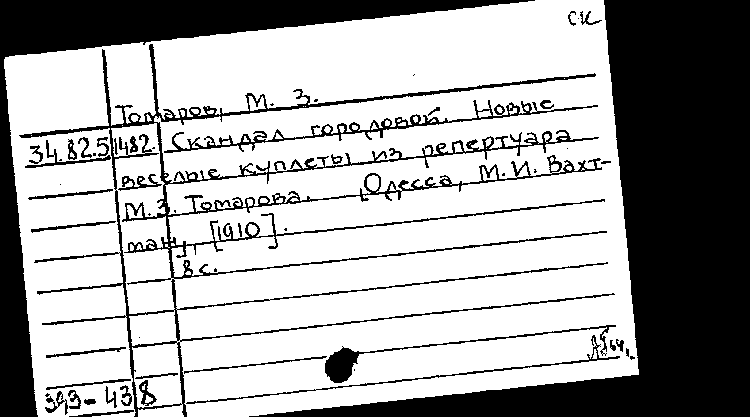 СК
Томаров, М. З.
34.82.5 1482. Скандал городовой. Новые
веселые куплеты из репертуара
М.З. Томарова. [Одесса, М.И. Вахт-
ман], [1910].
8 с.
393-438